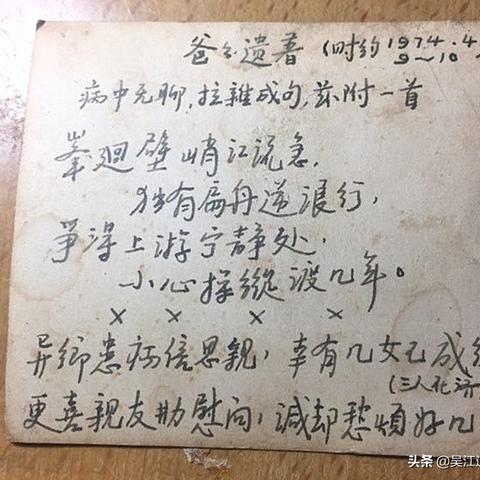 爸爸遗著（时约1974.4.
9～10
病中无聊，拉雜成句，兹附一首
峯迴壁峭江流急，
独有扁舟逆浪行，
争得上游宁静处，
小心操縱渡几年。
× × × ×
异鄉患病倍思親，幸有几女已成
（三人在济
更喜親友勤慰问，減却愁煩好几
头条@吴江